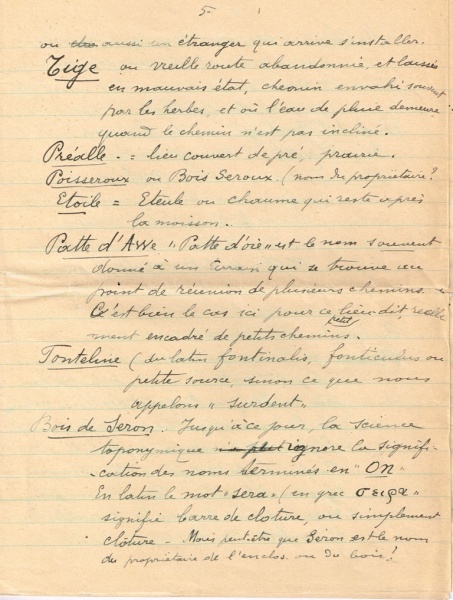 5.
ou aussi un étranger qui arrive s'installer.
Tige ou vieille route abandonnée, et laissée
en mauvais état, chemin envahi souvent
par les herbes, et où l'eau de pluie demeure
quand le chemin n'est pas incliné.
Préalle. = lieu couvert de pré, prairie.
Poisseroux ou Bois Seroux. (nom du propriétaire?
Etoile = Eteule ou chaume qui reste après
la moisson.
Patte d'Awe "Patte d'oie" est le nom souvent
donné à un terrain qui se trouve au
point de réunion de plusieurs chemins.
C'est bien le cas ici pour ce petit lieu dit, réelle
ment encadré de petits chemins.
Fonteline (du latin fontinalis, fonticulus ou
petite source, sinon ce que nous
appelons "surdent"
Bois de Seron. Jusqu'à ce jour, la science
toponymique ignore la signifi-
-cation des noms terminés en "On"
En latin le mot "sera" (en grec σειρα"
signifie barre de cloture, ou simplement
clôture - Mais peut-être que Seron est le nom
du propriétaire de l'enclos ou du bois!